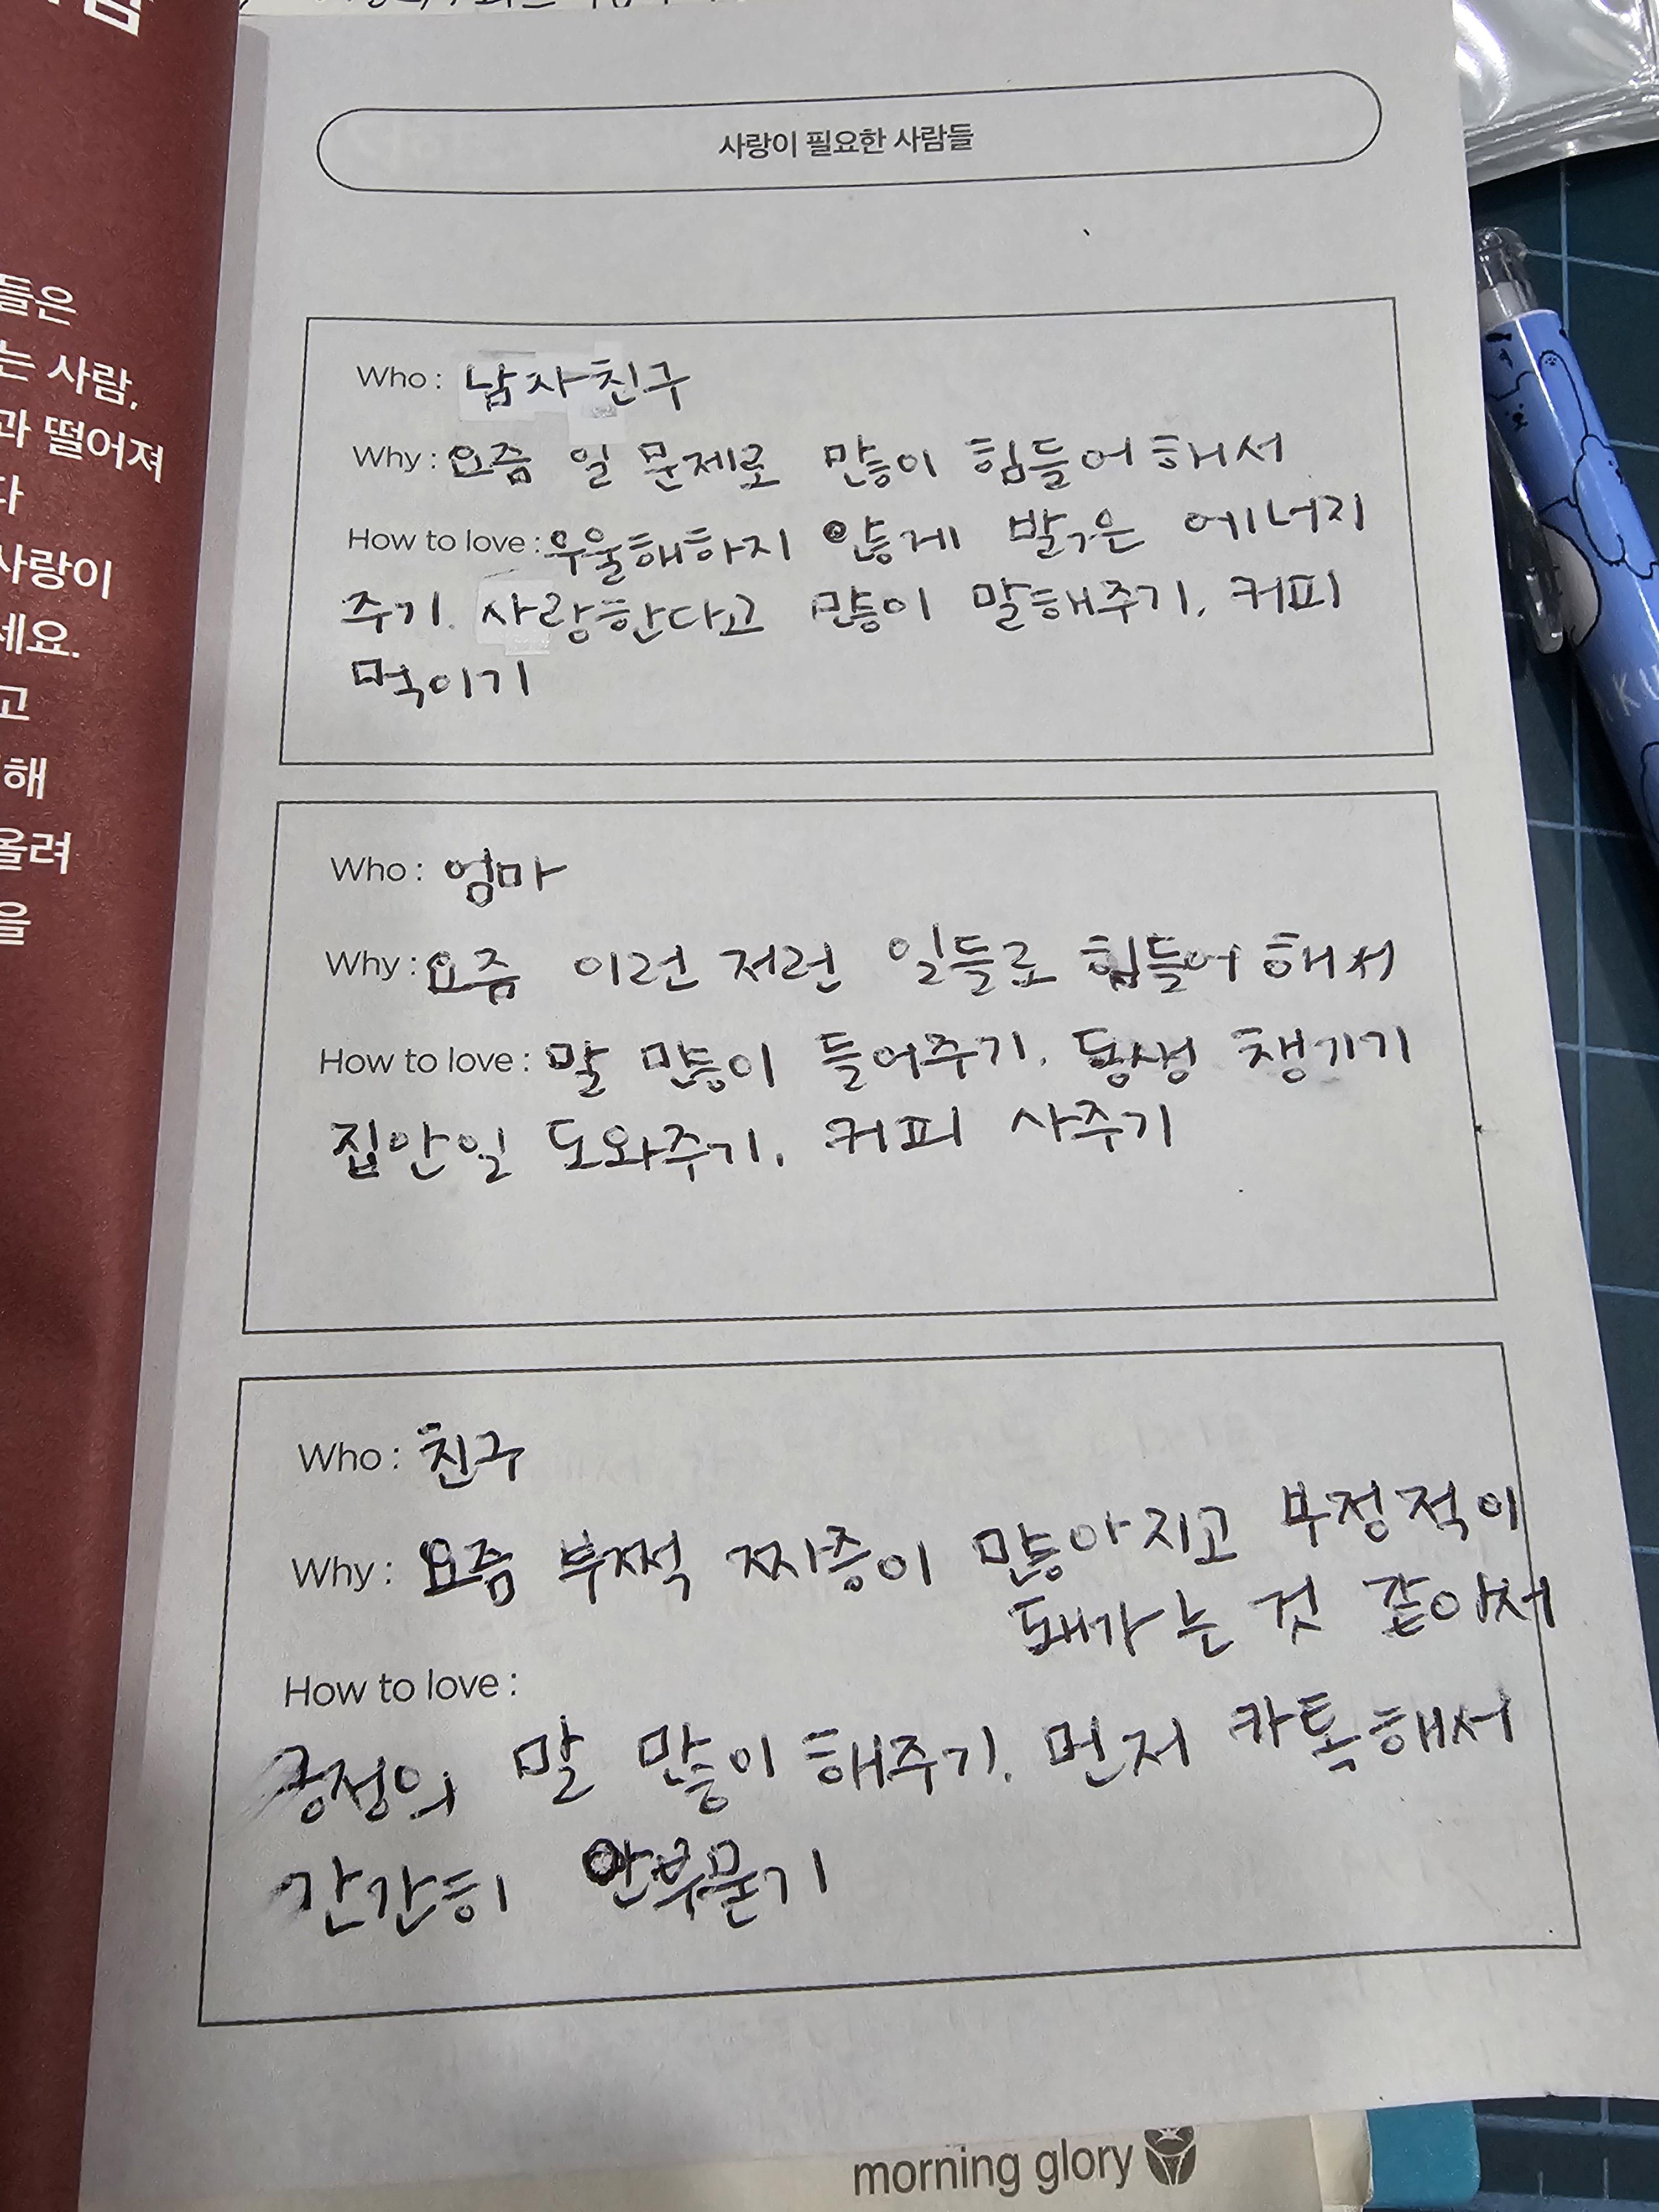 들은
는 사람,
과 떨어져
다
사랑이
세요.
고
해
올려
을
사랑이 필요한 사람들
Who : 남자친구
Why : 요즘 일 문제로 많이 힘들어해서
How to love : 우울해하지 않게 밝은 에너지
주기. 사랑한다고 많이 말해주기. 커피
먹이기
Who : 엄마
Why : 요즘 이런 저런 일들로 힘들어해서
How to love : 말 많이 들어주기. 동생 챙기기
집안일 도와주기. 커피 사주기
Who : 친구
Why : 요즘 부쩍 짜증이 많아지고 부정적이
돼가는 것 같아서
How to love :
긍정의 말 많이 해주기. 먼저 카톡해서
간간히 안부묻기
morning glory